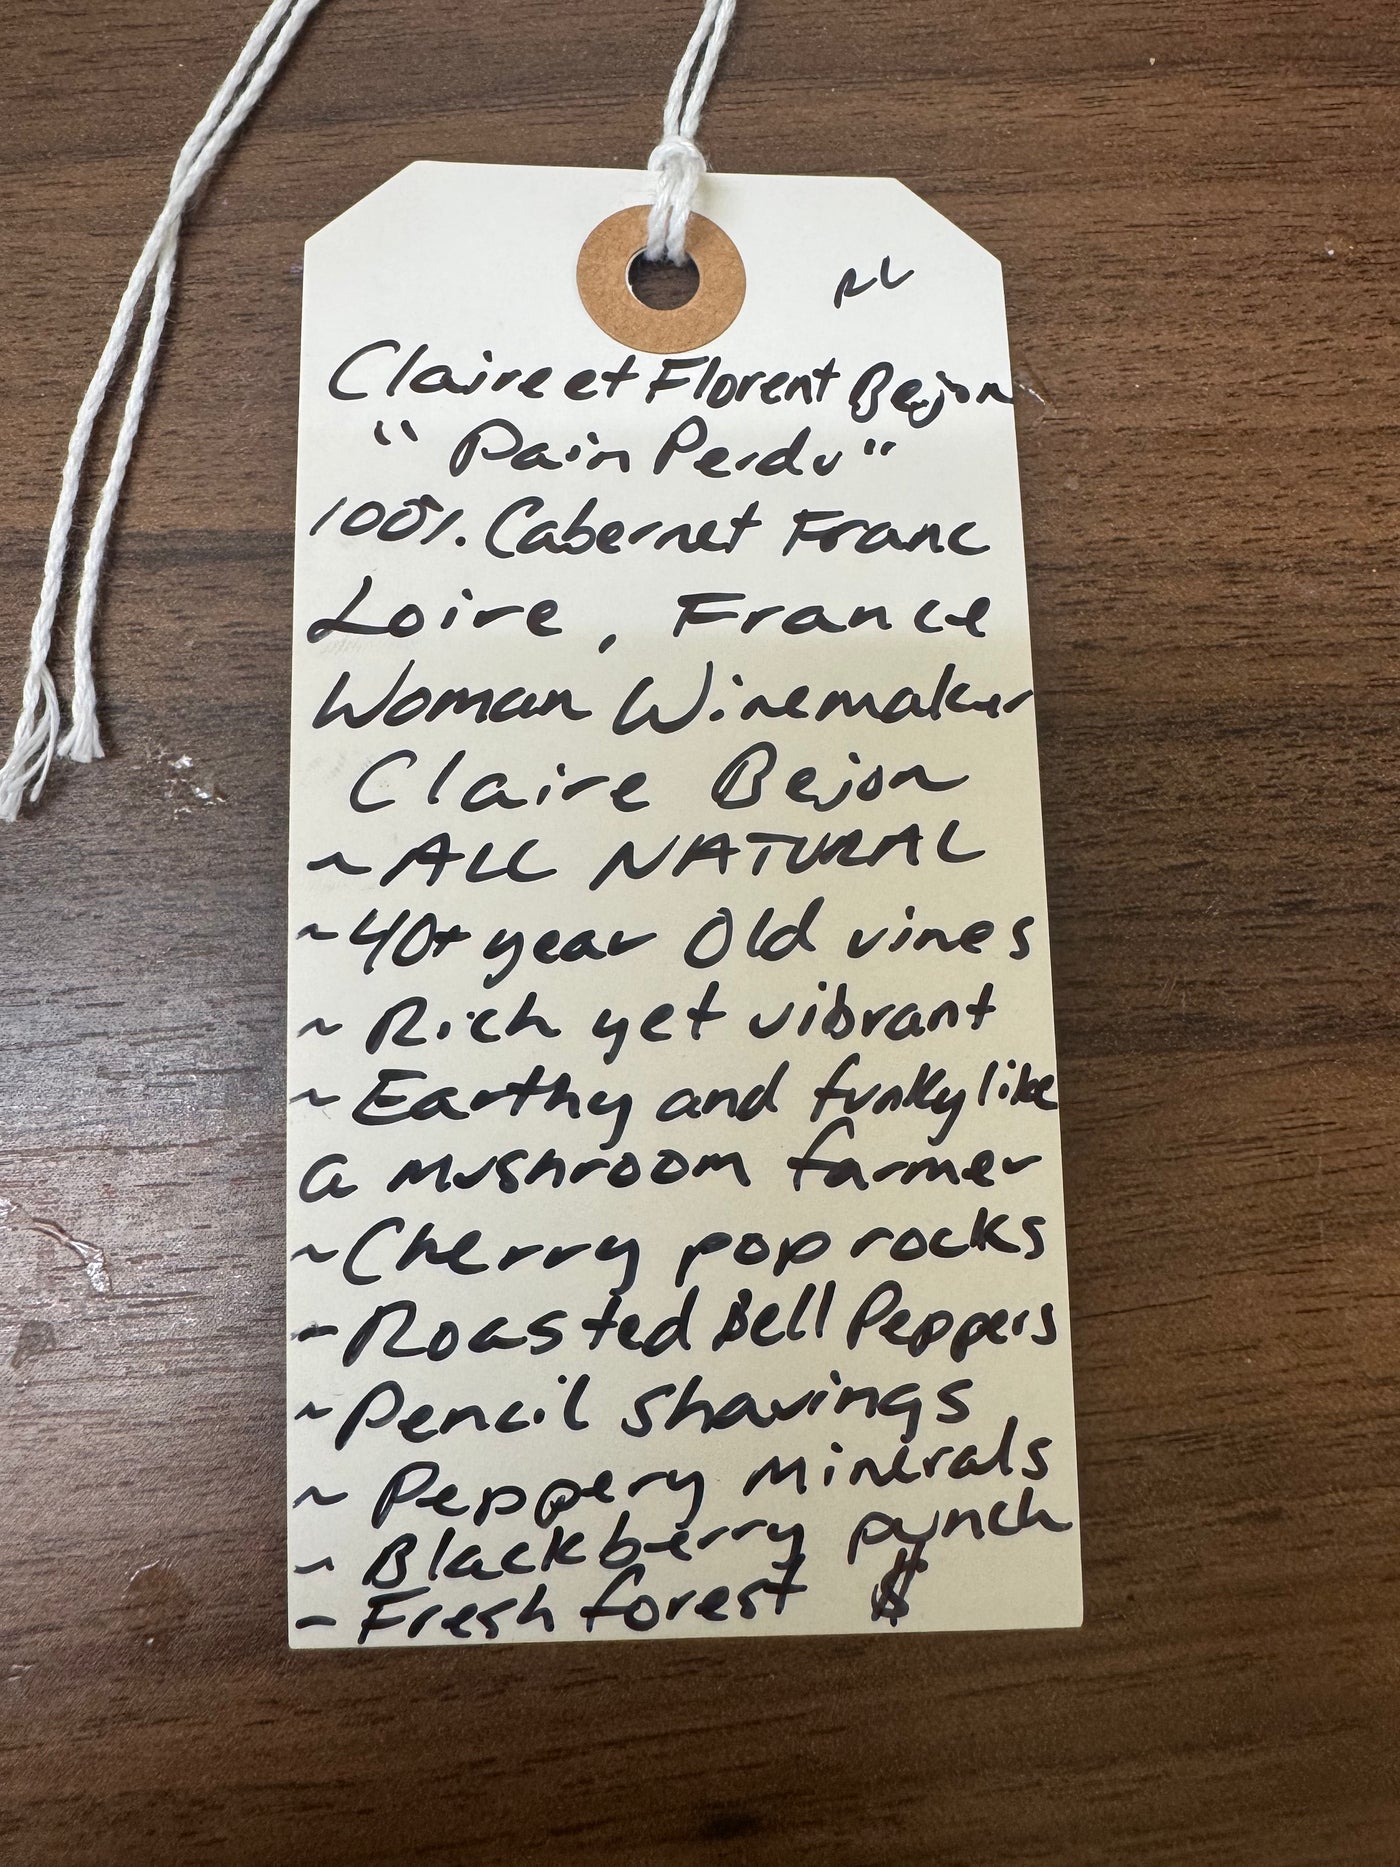 RL
Claire et Florent Bejon
"Pain Perdu"
100%. Cabernet Franc
Loire, France
Woman Winemaker
Claire Bejon
~ALL NATURAL
~40+ year Old vines
~ Rich yet vibrant
~ Earthy and funky like
a mushroom farmer
~Cherry pop rocks
~Roasted Bell Peppers
~Pencil shavings
~ Peppery Minerals
~ Blackberry punch
- Fresh forest $